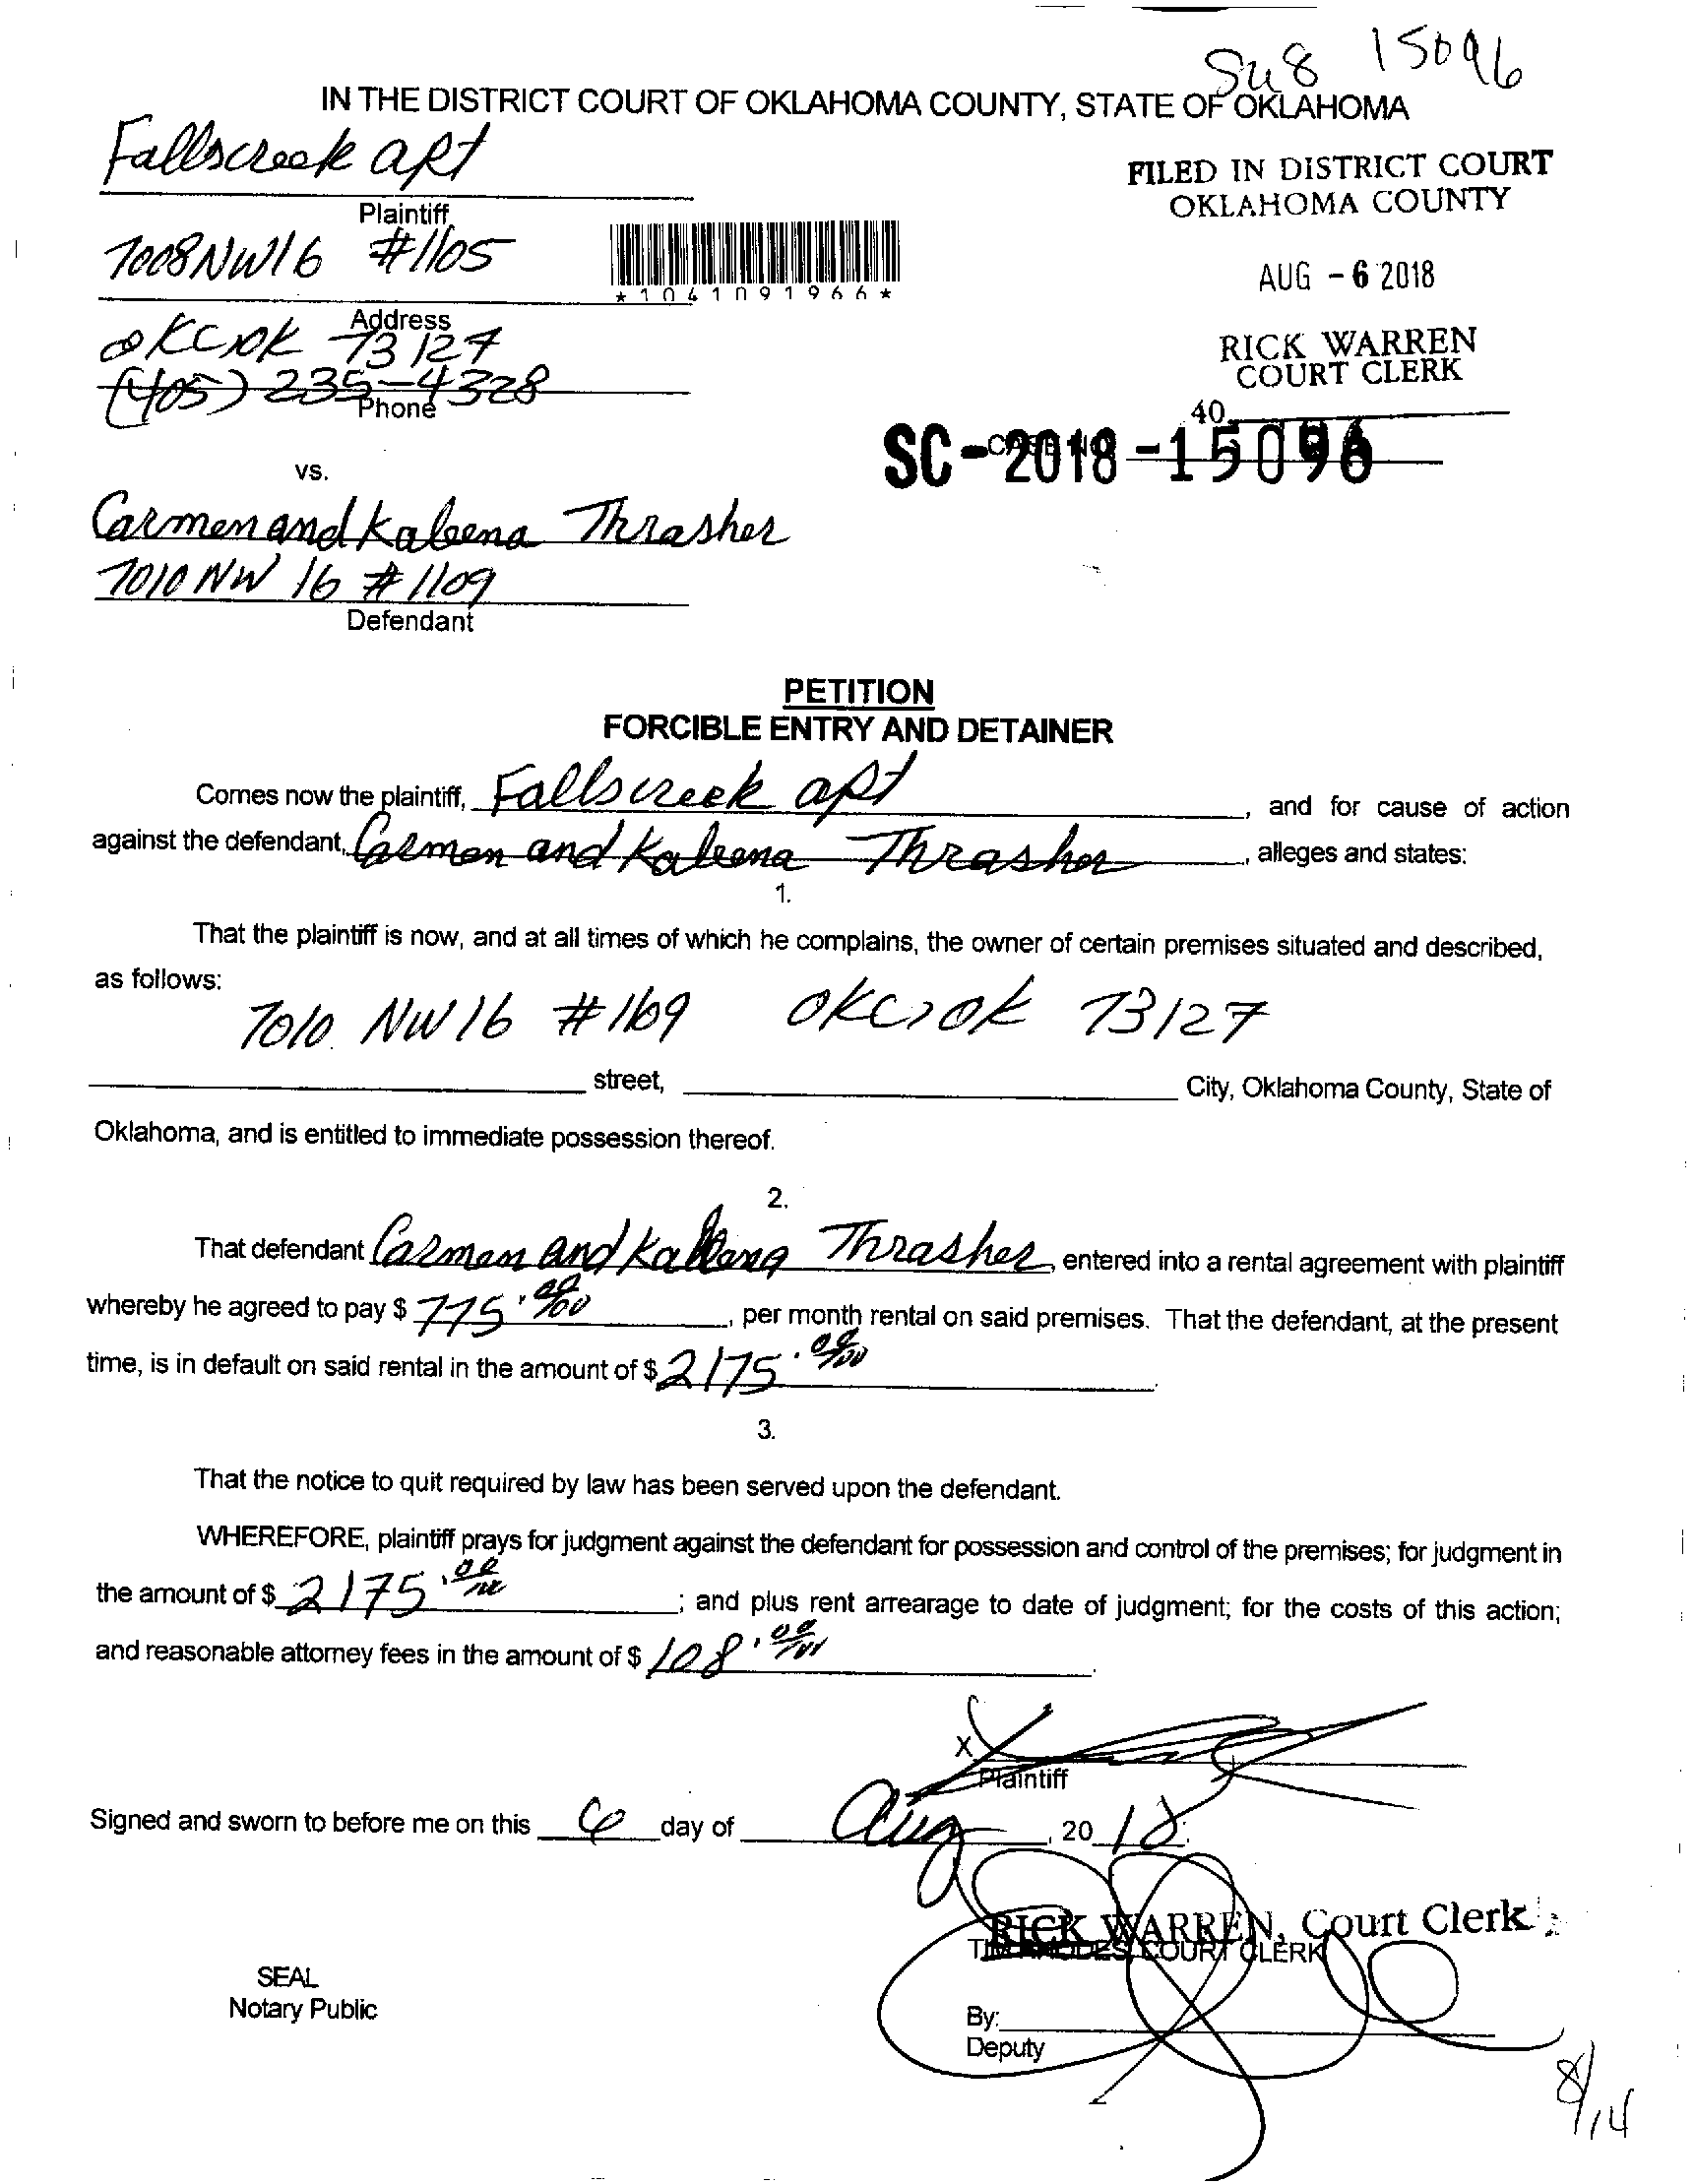 Su8 15096
IN THE DISTRICT COURT OF OKLAHOMA COUNTY, STATE OF OKLAHOMA
Fallscreek apt
Plaintiff
FILED IN DISTRICT COURT
OKLAHOMA COUNTY
7008 NW 16 #1105
Address
*1041091966*
AUG - 6 2018
OKC, OK 73127
(405) 235-4328
Phone
RICK WARREN
COURT CLERK
40
SC-2018-15096
vs.
Carmen and Kaleena Thrasher
7010 NW 16 #1109
Defendant
PETITION
FORCIBLE ENTRY AND DETAINER
Comes now the plaintiff, Fallscreek apt, and for cause of action
against the defendant, Carmen and Kaleena Thrasher, alleges and states:
1.
That the plaintiff is now, and at all times of which he complains, the owner of certain premises situated and described,
as follows:
7010 NW 16 #1109 OKC, OK 73127
street, City, Oklahoma County, State of
Oklahoma, and is entitled to immediate possession thereof.
2.
That defendant Carmen and Kaleena Thrasher entered into a rental agreement with plaintiff
whereby he agreed to pay $ 775.00/00, per month rental on said premises. That the defendant, at the present
time, is in default on said rental in the amount of $ 2175.00/00.
3.
That the notice to quit required by law has been served upon the defendant.
WHEREFORE, plaintiff prays for judgment against the defendant for possession and control of the premises; for judgment in
the amount of $ 2175.00/00; and plus rent arrearage to date of judgment; for the costs of this action;
and reasonable attorney fees in the amount of $ 108.00/00.
X
Plaintiff
Signed and sworn to before me on this 6 day of Aug, 20 18.
RICK WARREN, Court Clerk
TIM RHODES, COURT CLERK
SEAL
Notary Public
By:
Deputy
8/14